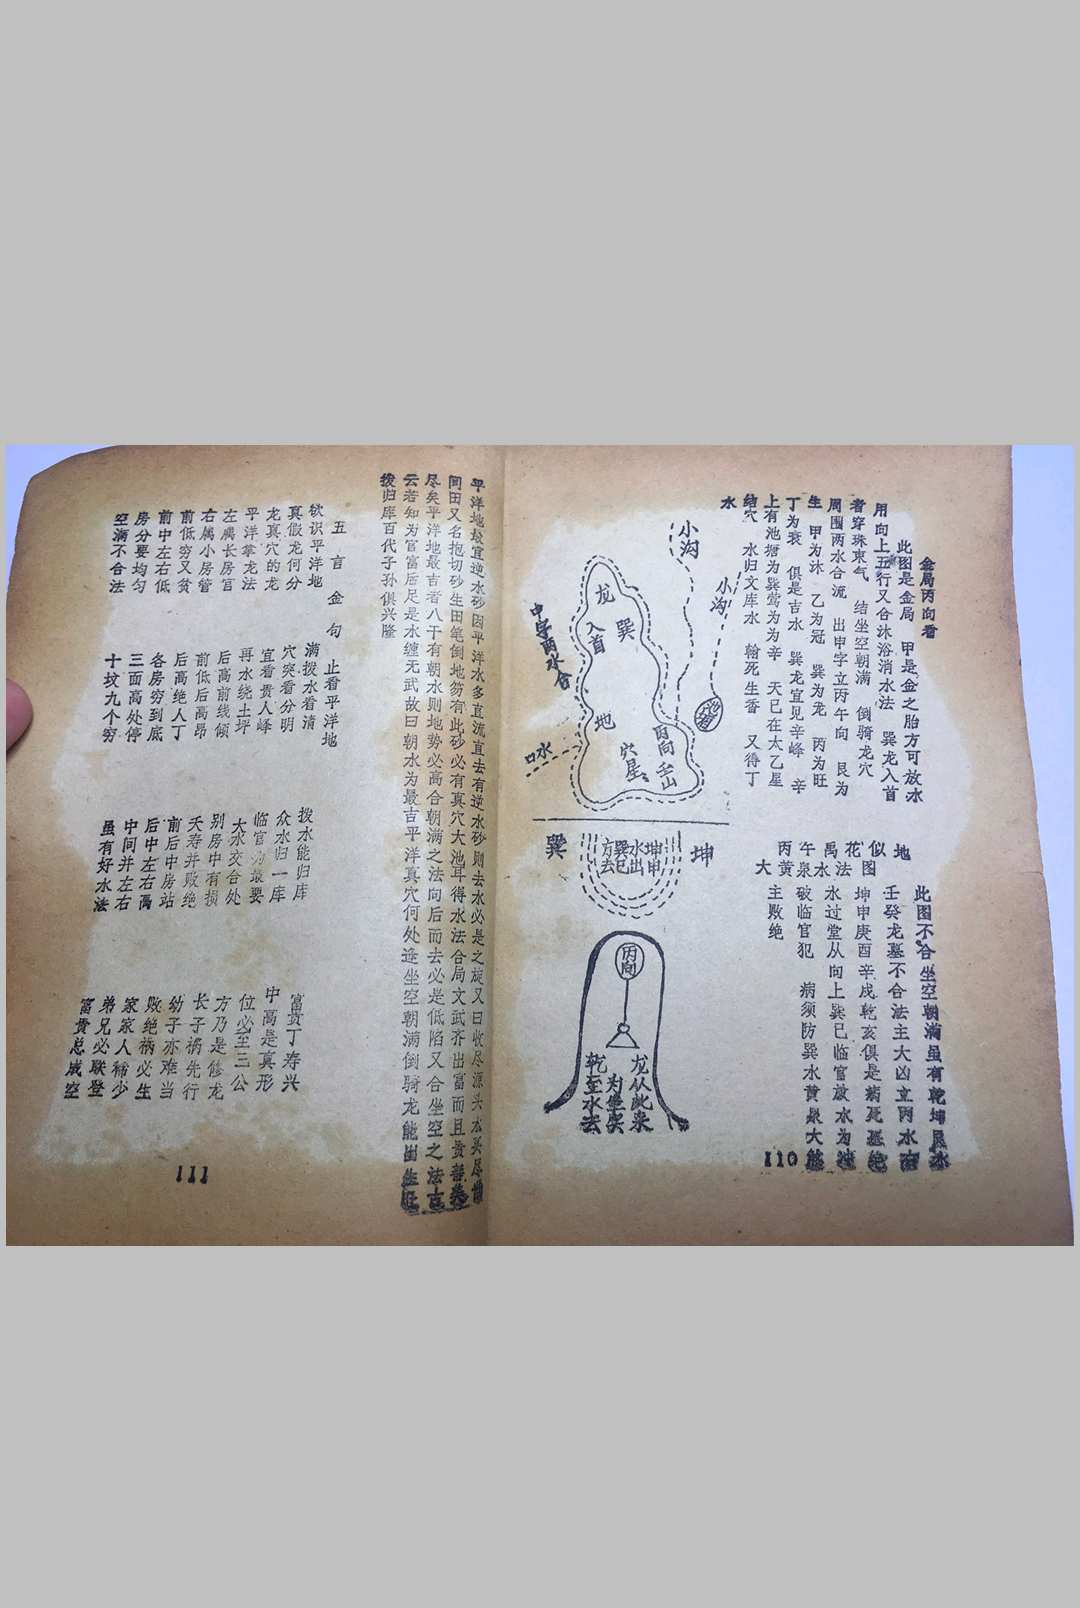 金局丙向看
此图是金局 甲是金之胎方可放水
用向上五行又合沐浴消水法 巽龙入首
者穿珠束气 结坐空朝满 倒骑龙穴
周围两水合流 出申字立丙午向 艮为
生 甲为沐 乙为冠 巽为龙 丙为旺
丁为衰 俱是吉水 巽龙宜见辛峰 辛
上有池塘为巽莺为为辛 天巳在太乙星
结穴 水归文库水 翰死生香 又得丁
水
小沟
小沟
中字两水合
龙
入首
巽
地
穴星
丙向
壬山
口水
巽
坤
坤申
水出
巽巳
方去
丙向
龙从此来
为坐实
乾至水去
地
似图
花法
禹水
午泉
丙黄
大
此图不合坐空朝满虽有乾坤艮水
壬癸龙墓不合法主大凶立丙水
坤申庚酉辛戌乾亥俱是病死墓绝
水过堂从向上巽巳临官放水为
破临官犯 病须防巽水黄泉大
主败绝
110
平洋地坟宜逆水砂因平洋水多直流直去有逆水砂则去水必是之旋又曰收尽源头水买尽
间田又名抱切砂生田笔倒地笏有此砂必有真穴大池耳得水法合局文武齐出富而且贵
尽矣平洋地最吉者八干有朝水则地势必高合朝满之法向后而去必是低陷又合坐空之法
云若知为官富后足是水缠无武故曰朝水为最吉平洋真穴何处逢坐空朝满倒骑龙能出生
拨归库百代子孙俱兴隆
五言金句
止看平洋地
砍识平洋地 满拨水看清 拨水能归库 富贵丁寿兴
真假龙何分 穴突看分明 众水归一库 中高是真形
龙真穴的龙 宜看贵人峰 临官为最要 位必至三公
平洋掌龙法 再水绕土坪 大水交合处 方乃是修龙
左属长房官 后高前线倾 别房中有损 长子祸先行
右属小房管 前低后高昂 夭寿并败绝 幼子亦难当
前低穷又贫 后高绝人丁 前后中房站 败绝祸必生
前中左右低 各房穷到底 后中左右高 家家人稀少
房分要均匀 三面高处停 中间并左右 弟兄必联登
空满不合法 十坟九个穷 虽有好水法 富贵总成空
111